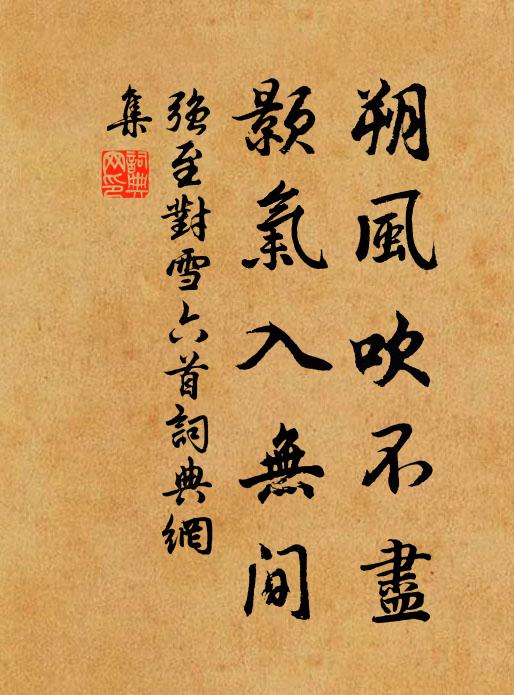 朔風吹不盡
顥氣入無间
強至對雪六首詞典網
集
詞典
网印